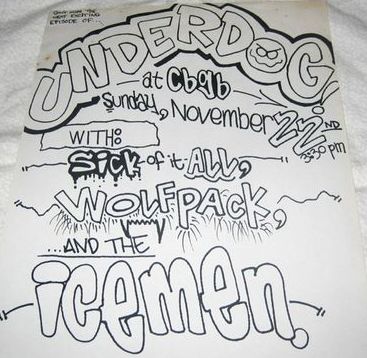 NEXT EXCITING
EPISODE OF...
UNDERDOG
at cbgb
Sunday, November 22ND
3:30 pm
WITH:
Sick of it ALL,
WOLFPACK,
...AND THE
icemen.